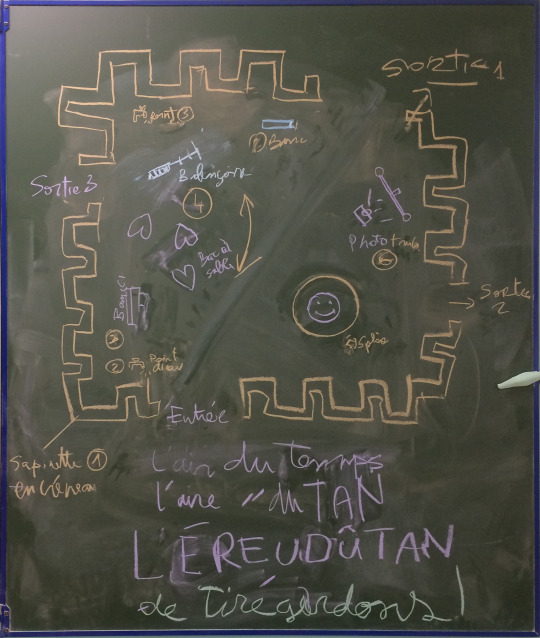 Sortie 1
Point 3
1 Banc
Balançoire
Sortie 3
4
Bac à
sable
Photo
6
Banc
Sortie
2
3
2 Point
d'eau
5
Entrée
Sapinette 1
en créneau
L'air du temps
L'aire " du TAN
L'ÉREUDÛTAN
de Tirégerdous!